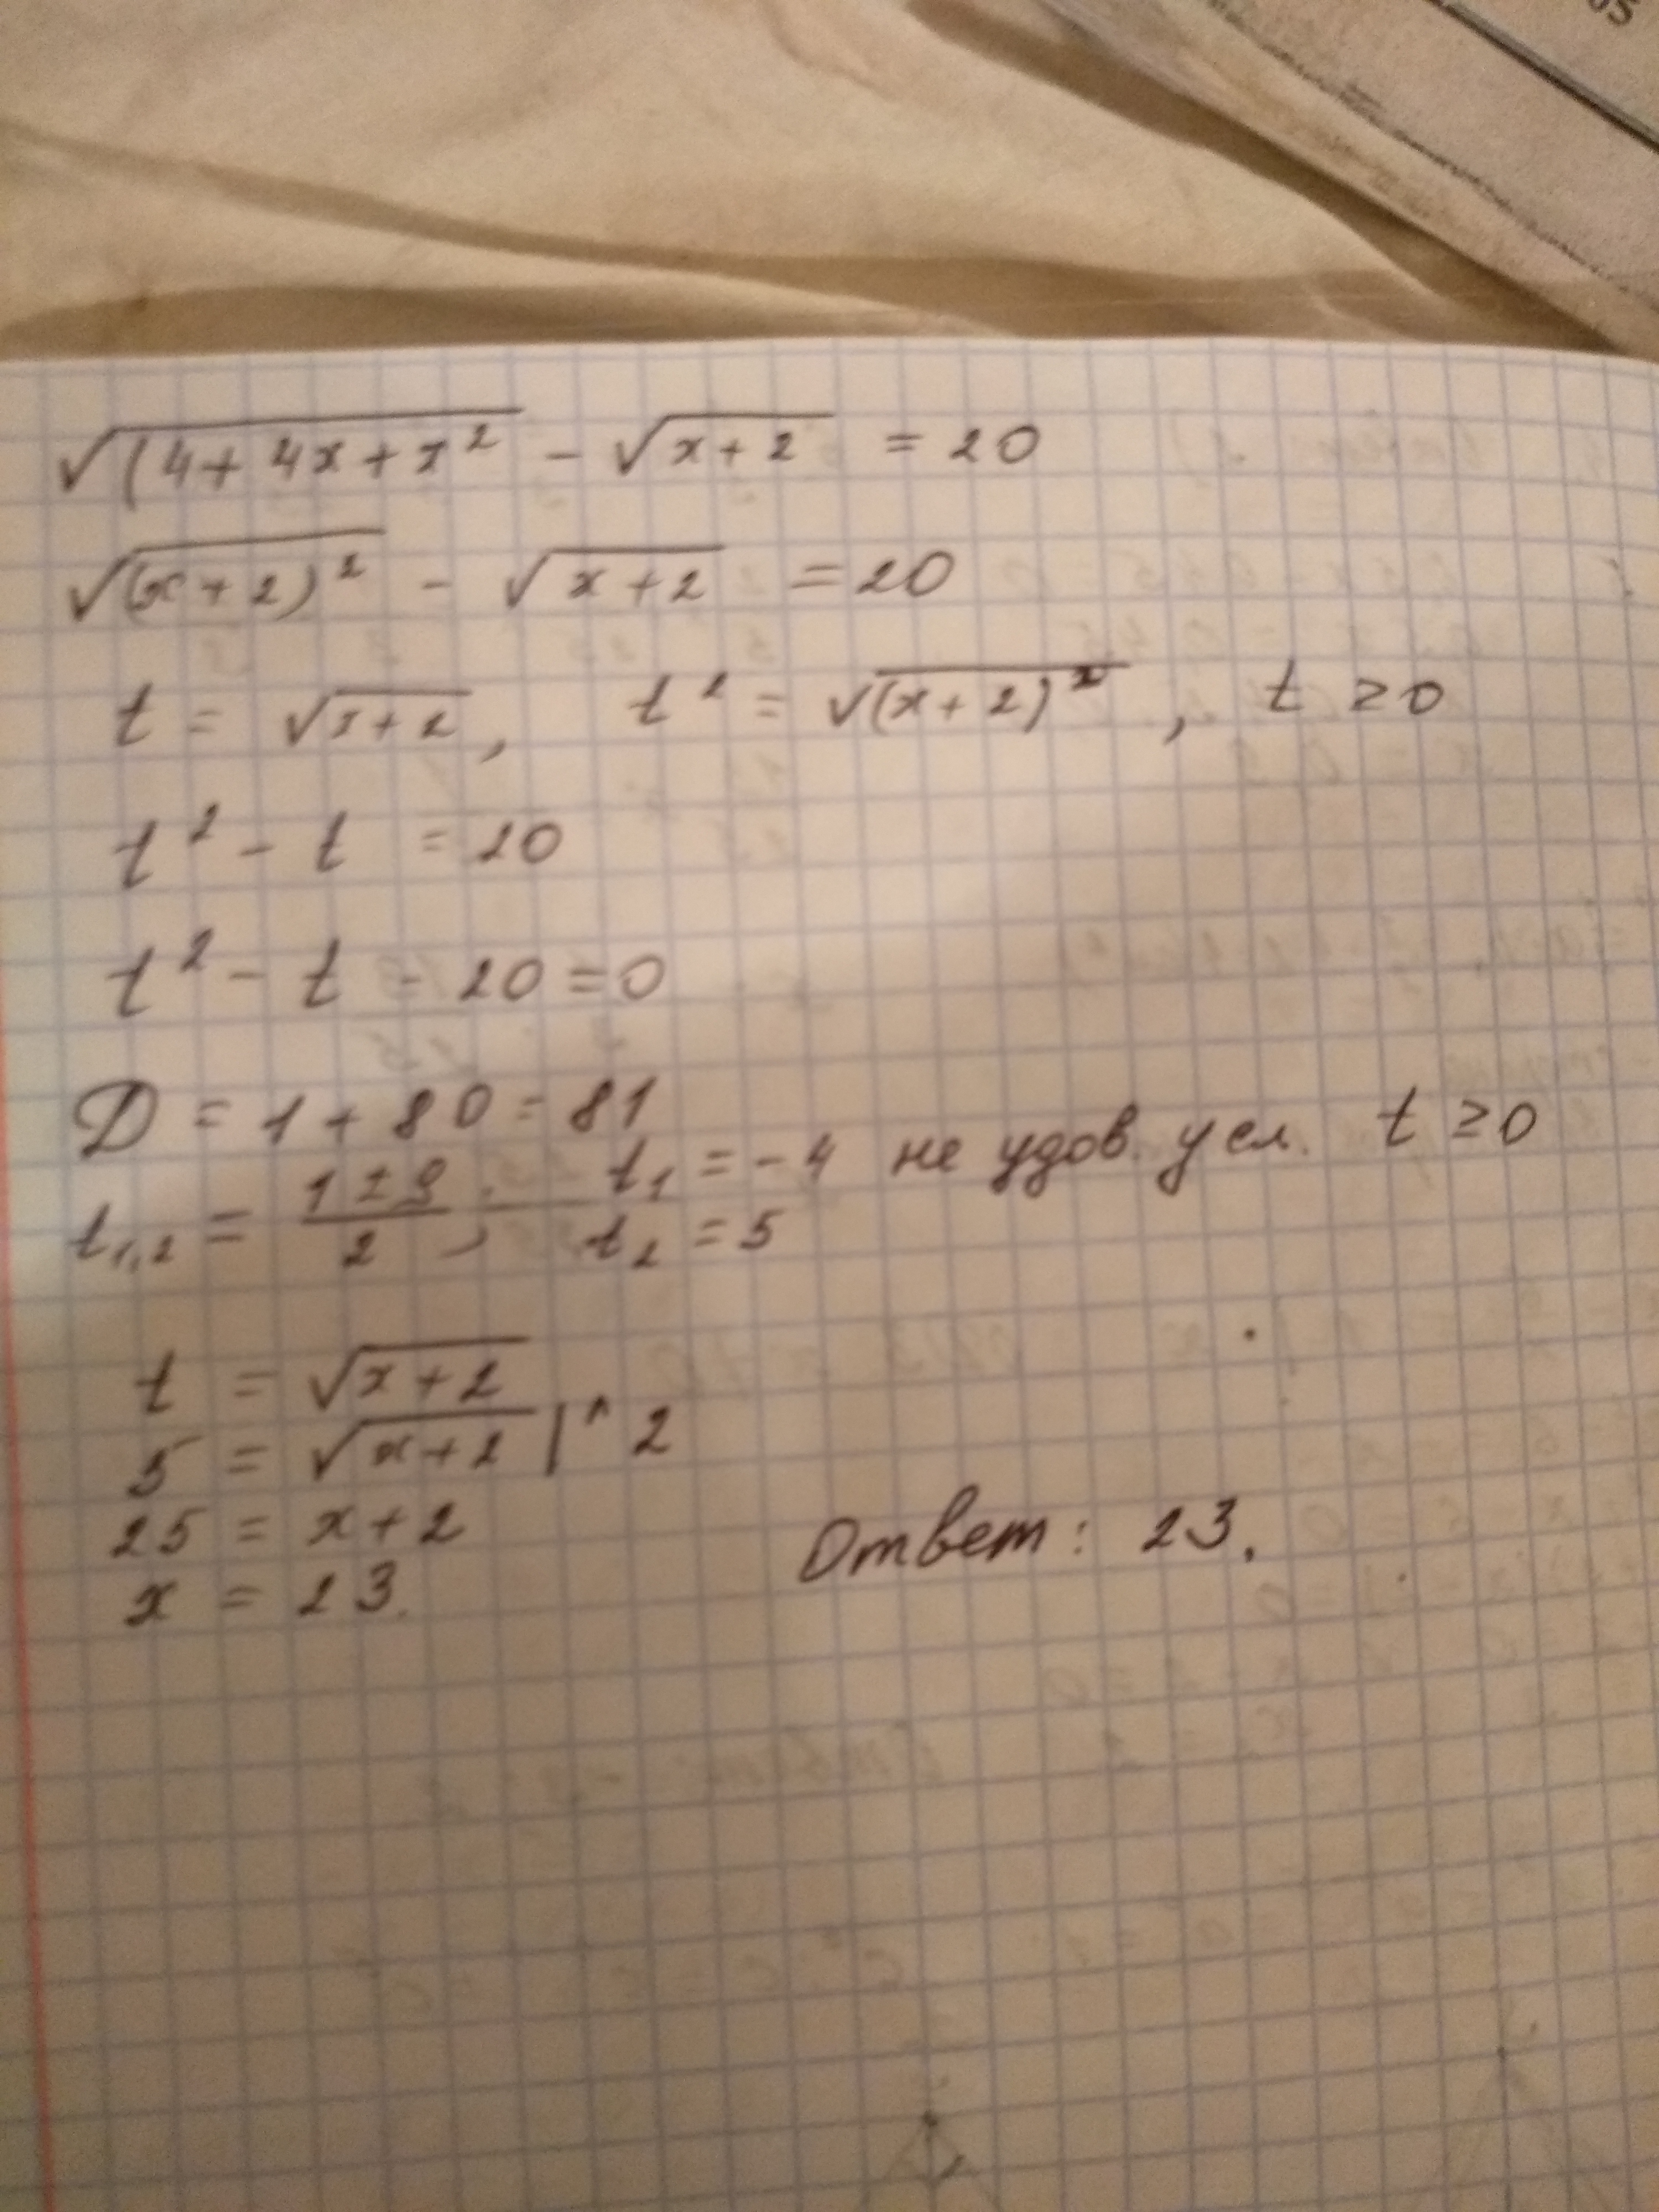 √(4+4x+x² - √x+2 = 20
√(x+2)² - √x+2 = 20
t = √x+2, t² = √(x+2)², t ≥ 0
t² - t = 20
t² - t - 20 = 0
D = 1 + 80 = 81
t₁,₂ = (1±9)/2; t₁ = -4 не удов. усл. t ≥ 0
t₂ = 5
t = √x+2
5 = √x+2 |^2
25 = x+2
x = 23.
Ответ: 23.
05